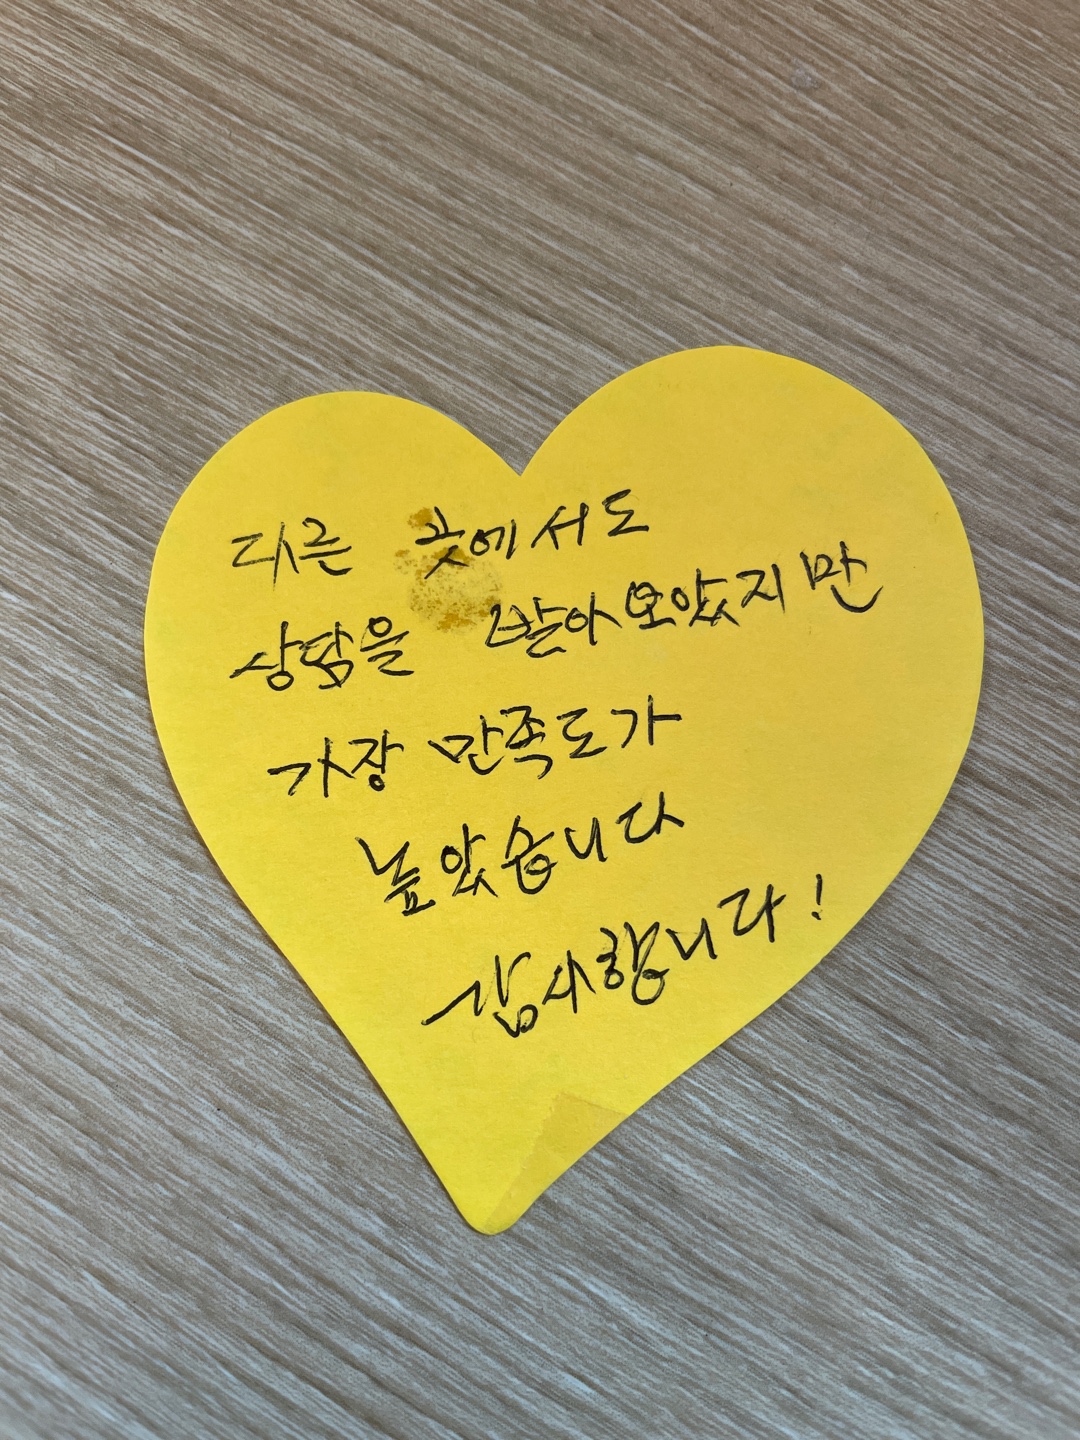 다른 곳에서도
상담을 받아보았지만
가장 만족도가
높았습니다
감사합니다!